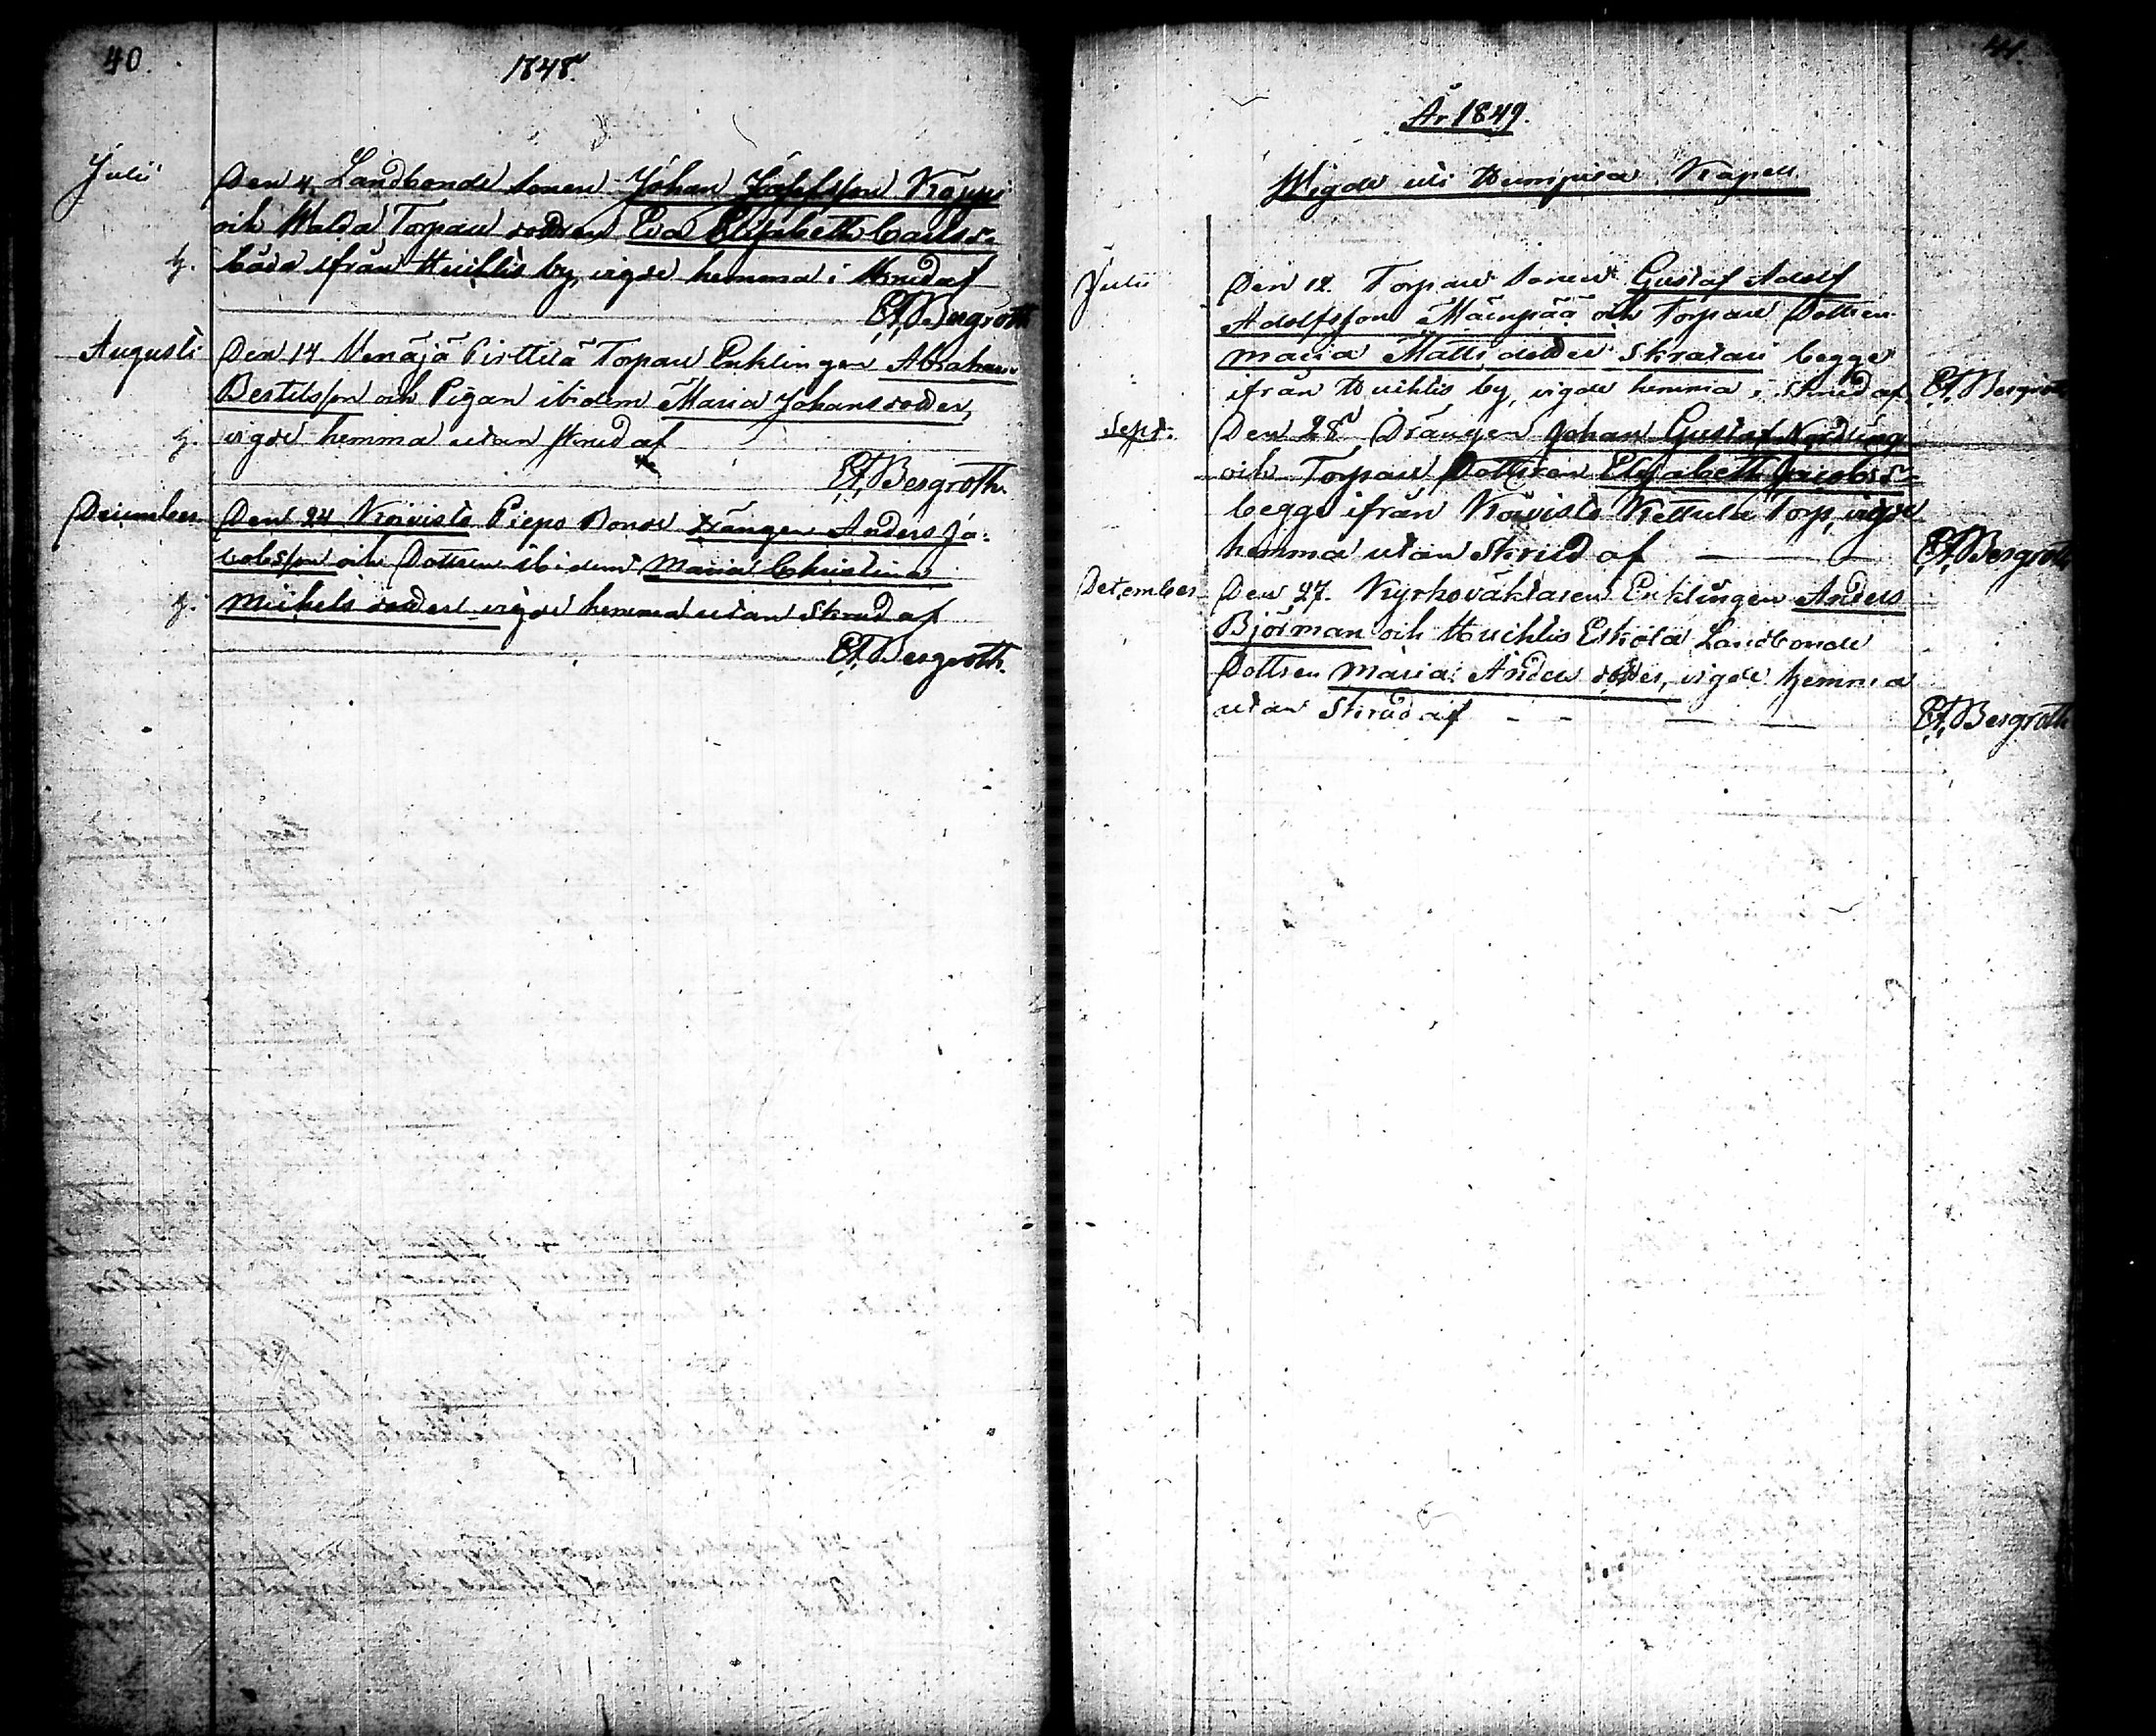 40.
1848.
Julii
Den 4. Landbonde sonen Johan Josefsson Koppi
och Walda Torpare dottren Eva Elisabeth Carlsd.
båda ifrån Huihtis by, vigde hemma i skrud af
E.A. Bergroth
Augusti
Den 14 Venäjä Pirttilä Torpare Enklingen Abraham
Bertilsson och Pigan ibidem Maria Johansdotter,
vigde hemma utan skrud af
E.A. Bergroth.
December
Den 24 Koivisto Piepo Bonde drängen Anders Ja-
cobsson och Dottren ibidem Maria Christina
Michelsdotter vigde hemma utan Skrud af
E.A. Bergroth.
41.
År 1849.
Wigde uti Kapell
Julii
Den 12. Torpare Sonen Gustaf Adolf
Adolfsson Mäenpää och Torpare Dottren
Maria Mattsdotter Skratari begge
ifrån Huihtis by, vigde hemma i skrud af E.A. Bergroth
Sept.
Den 28 Drängen Johan Gustaf Nordling
och Torpare Dottren Elisabeth Jacobsd.
begge ifrån Koivisto Kettula Torp, vigde
hemma utan Skrud af — — — E.A. Bergroth
December
Den 27. Kyrkoväktaren Enklingen Anders
Björman och Huihtis Eskola Landbonde
Dottren Maria Andersdotter, vigde hemma
utan Skrud af - - — — E.A. Bergroth